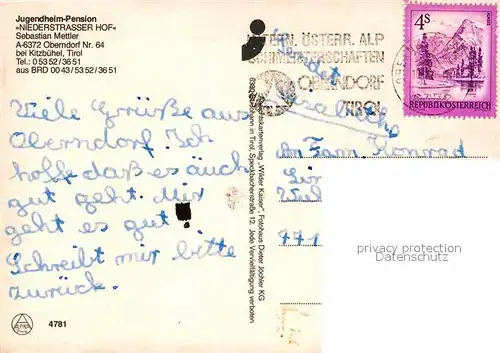 Jugendheim-Pension
»NIEDERSTRASSER HOF«
Sebastian Mettler
A-6372 Oberndorf Nr. 64
bei Kitzbühel, Tirol
Tel.: 0 53 52 / 36 51
aus BRD 00 43 / 53 52 / 36 51
Viele Grüße aus
Oberndorf. Ich
hoffe daß es äuch
gut geht. Mir
geht es gut
Schreibt mir bitte
zurück.
4781
INTERN. ÖSTERR. ALP
OBERNDORF
TIROL
4s
REPUBLIK ÖSTERREICH
An Fam. Konrad
771
Ansichtskartenverlag „Wilder Kaiser", Fotohaus Dieter Jöchler KG
in Tirol, Speckbacherstraße 12. Jede Vervielfältigung verboten
privacy protection
Datenschutz